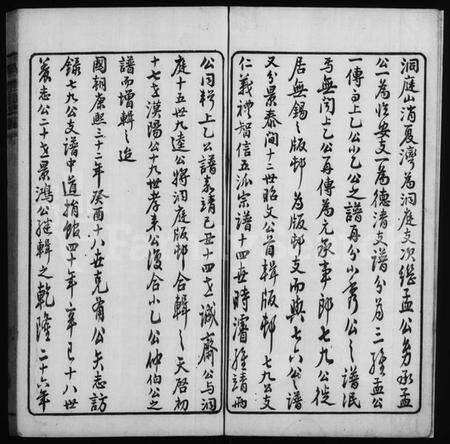 洞庭山消夏灣為洞庭支次繼孟公另承孟
公一為臨安支一為德清支譜分為三經孟公
一傳而上乙公小乙公之譜再分小秀公之譜泯
焉無聞上乙公再傳為元承事郎七九公徙
居無錫之版邨為版邨支而與七六公之譜
又分景泰間十二世昭文公首輯版邨七九公支
仁義禮智信五派宗譜十四世時濬經請兩
公同輯上乙公譜嘉靖己丑十四世誠齋公與洞
庭十五世九逵公將洞庭版邨合輯之天啓初
十七世漢陽公十九世孝来公復合小乙公仲伯公之
譜而增輯之迨
國朝康熙三十二年癸酉十八世克菴公矢志訪
錄七九公支譜中道捐館四十年辛巳十八世
養志公二十世景鴻公繼輯之乾隆二十六年